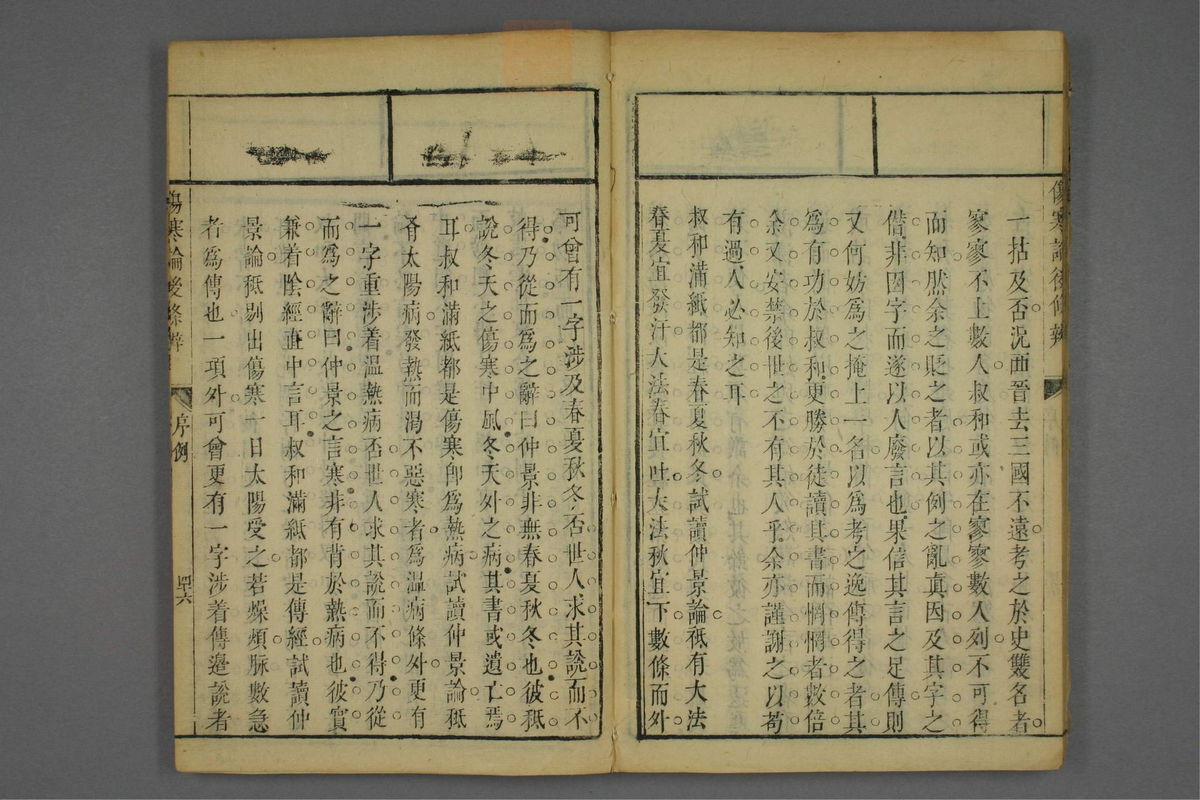 傷寒論後條辨
一拈及否況西晉去三國不遠考之於史雙名者
寥寥不上數人叔和或亦在寥寥數人列不可得
而知然余之貶之者以其例之亂真因及其字之
僣非因字而遂以人廢言也果信其言之足傳則
又何妨為之掩上一名以為考之逸傳得之者其
為有功於叔和更勝於徒讀其書而惘惘者數倍
余又安禁後世之不有其人乎余亦謹謝之以苟
有過人必知之耳
叔和滿紙都是春夏秋冬試讀仲景論秪有大法
春夏宜發汗大法春宜吐大法秋宜下數條而外
可曾有一字涉及春夏秋冬否世人求其說而不
得乃從而為之辭曰仲景非無春夏秋冬也彼秪
說冬天之傷寒中風冬天外之病其書或遺亡焉
耳叔和滿紙都是傷寒即為熱病試讀仲景論秪
有太陽病發熱而渴不惡寒者為溫病條外更有
一字重涉着溫熱病否世人求其說而不得乃從
而為之辭曰仲景之言寒非有背於熱病也彼實
兼着陰經直中言耳叔和滿紙都是傳經試讀仲
景論秪剔出傷寒一日太陽受之若燥煩脉數急
者為傳也一項外可曾更有一字涉着傳邊說者
傷寒論後條辨
序例
四六